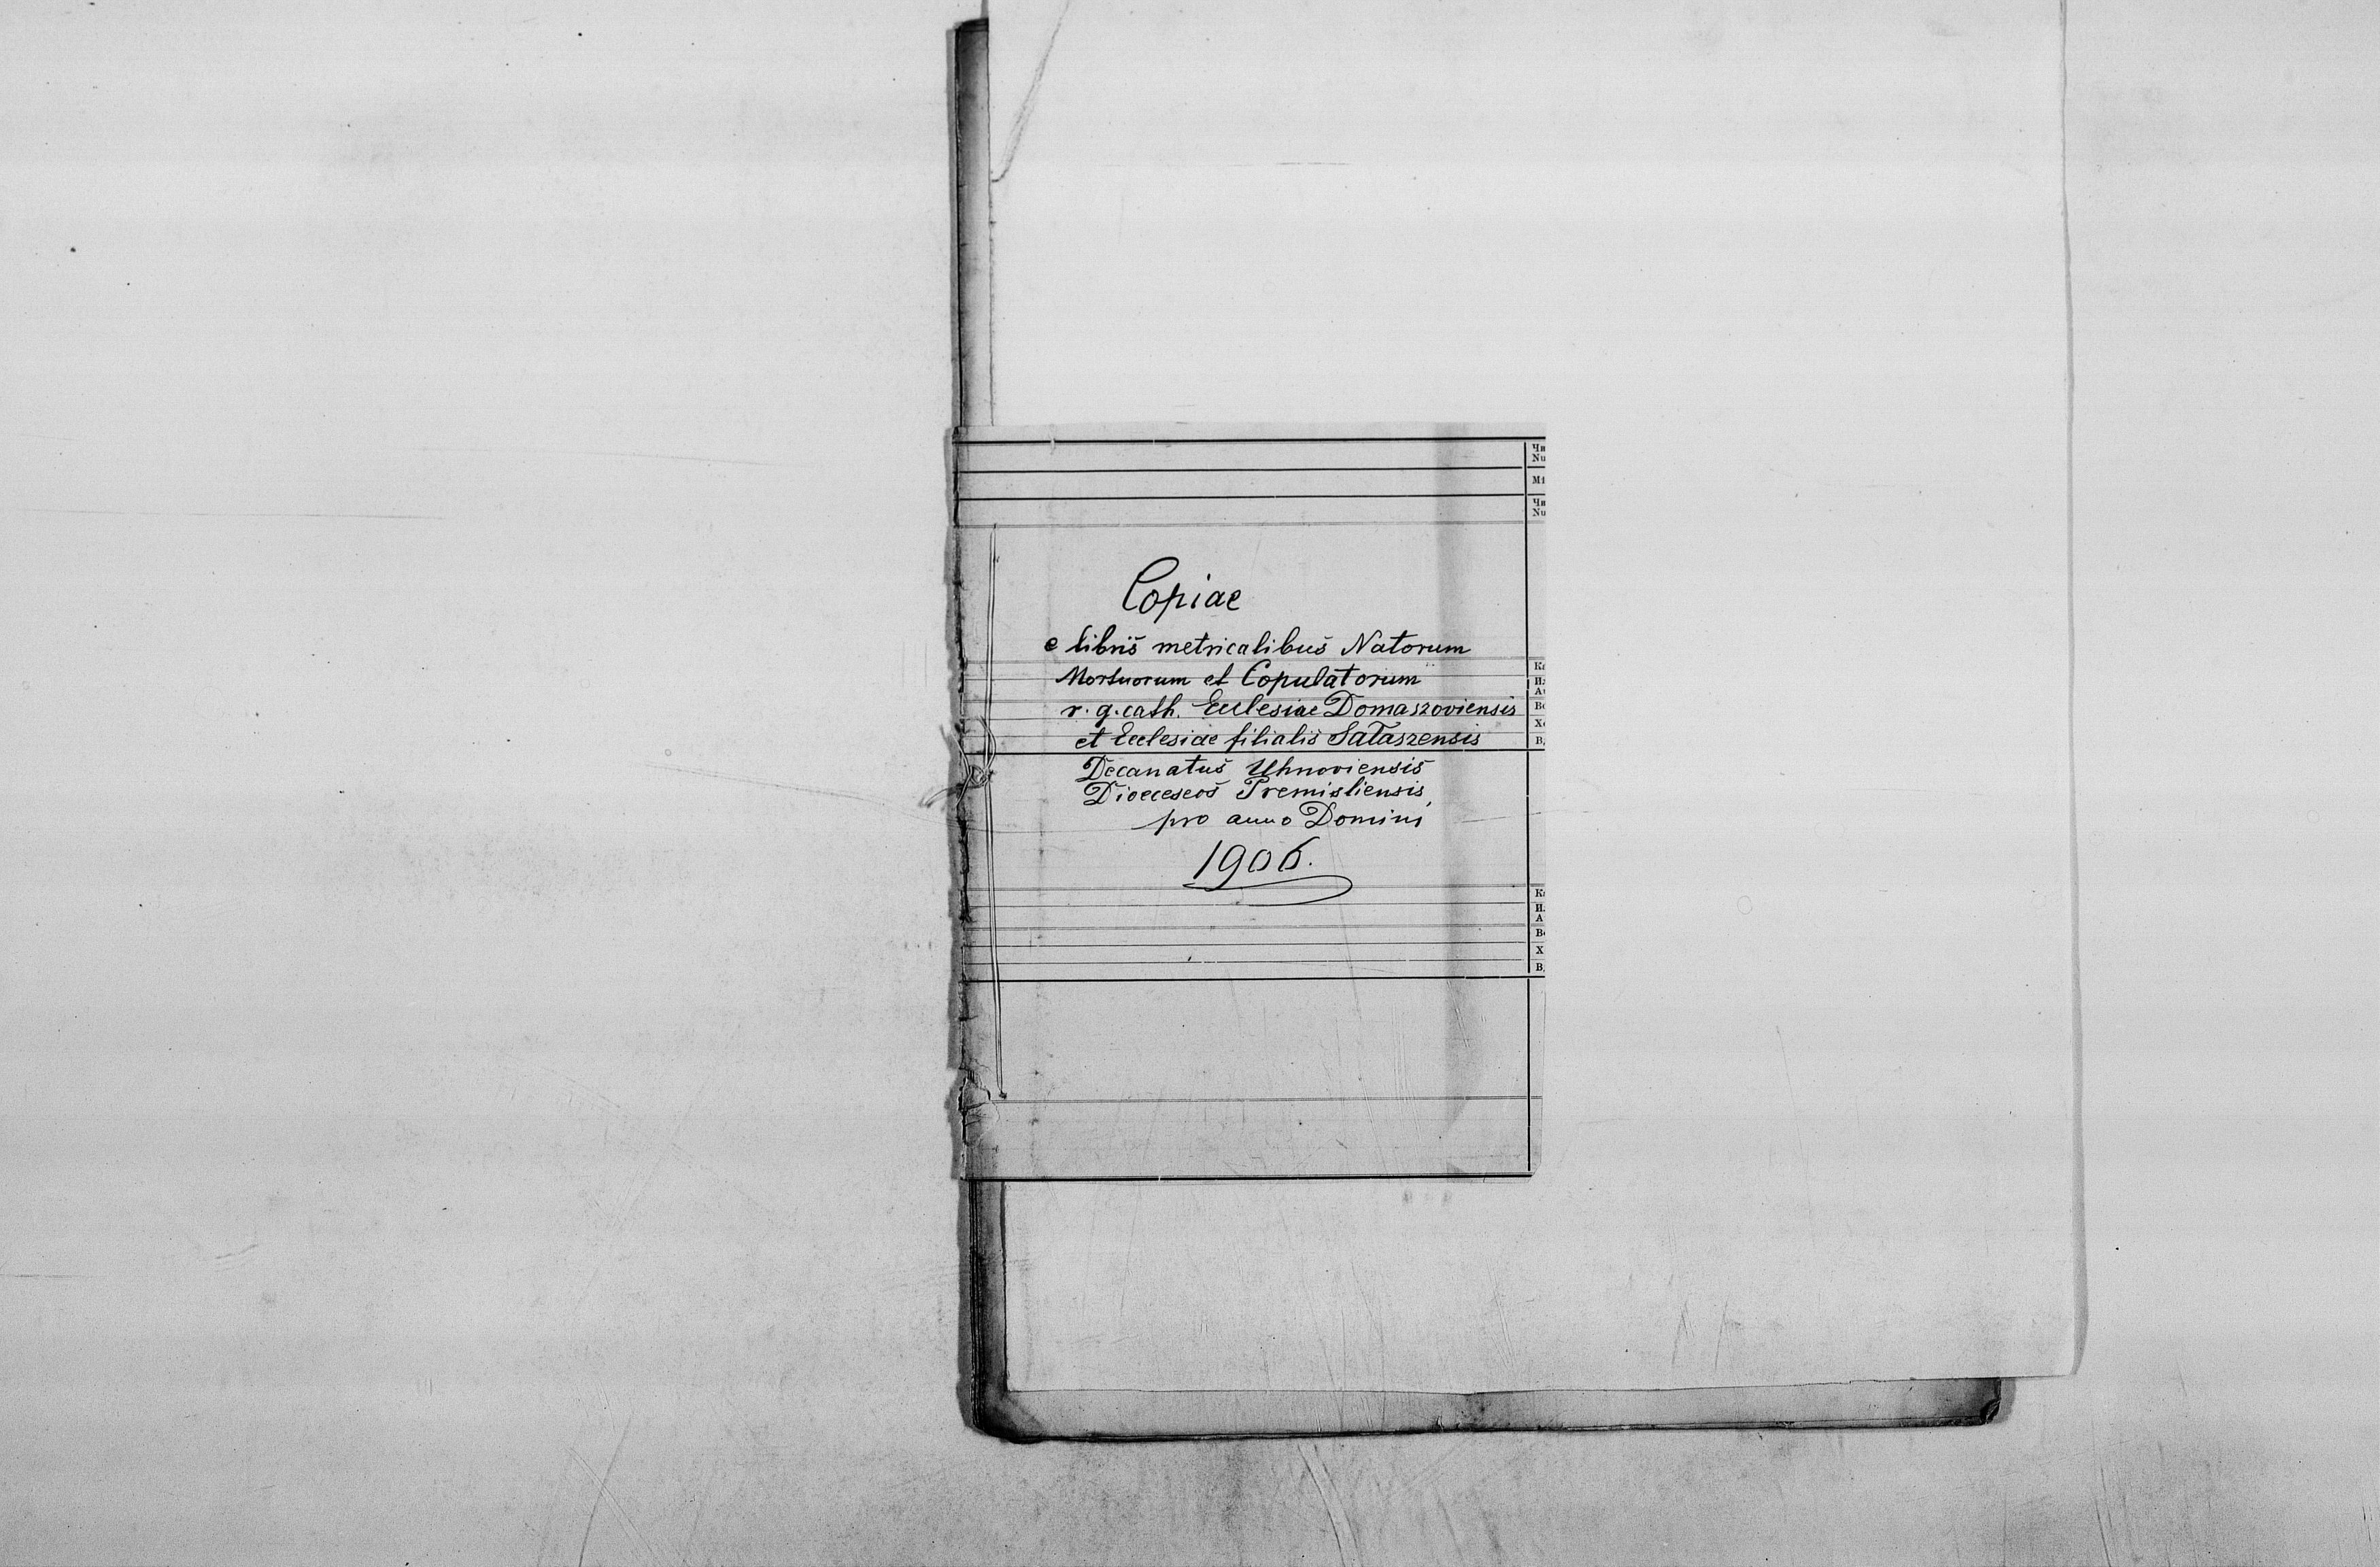 Copiae
e libris metricalibus Natorum
Mortuorum et Copulatorum
r. g. cath. Ecclesiae Domaszoviensis
et Ecclesiae filialis Sałaszensis
Decanatus Uhnoviensis
Dioeceseos Premisliensis,
pro anno Domini
1906.